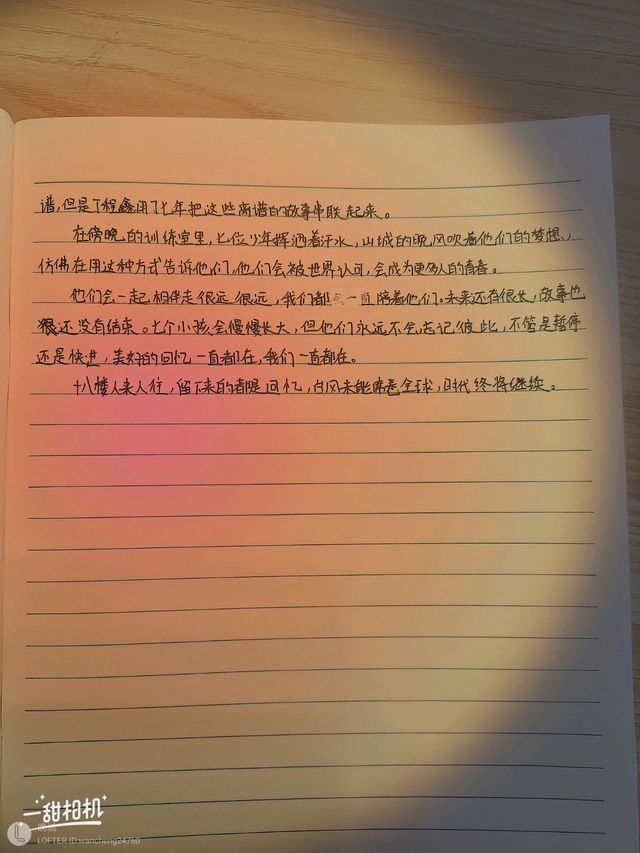 谱,但是丁程鑫用了七年把这些离谱的故事串联起来。
在傍晚的训练室里,七位少年挥洒着汗水,山城的晚风吹着他们的梦想,
仿佛在用这种方式告诉他们,他们会被世界认可,会成为更多人的青春。
他们会一起相伴走很远很远,我们都会一直陪着他们。未来还有很长,故事也
很还没有结束。七个小孩会慢慢长大,但他们永远不会忘记彼此,不管是暂停
还是快进,美好的回忆一直都在,我们一直都在。
十八楼人来人往,留下来的都是回忆,台风未能席卷全球,时代终将继续。
一甜相机
LOFTER ID:wancheng24760